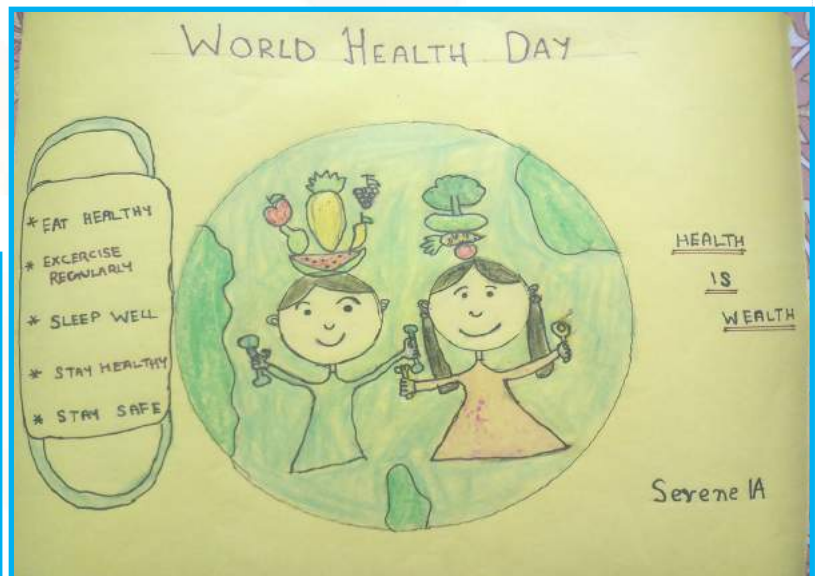 WORLD HEALTH DAY
* EAT HEALTHY
* EXCERCISE
REGULARLY
* SLEEP WELL
* STAY HEALTHY
* STAY SAFE
HEALTH
IS
WEALTH
Serene IA